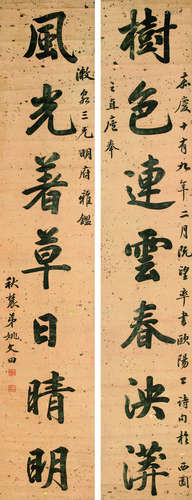 嘉慶十有九年二月阮望率書歐陽詩句於西園
樹色連雲春泱漭
之直廬奉
澂泉三兄明府雅鑑
風光著草日晴明
秋農弟姚文田